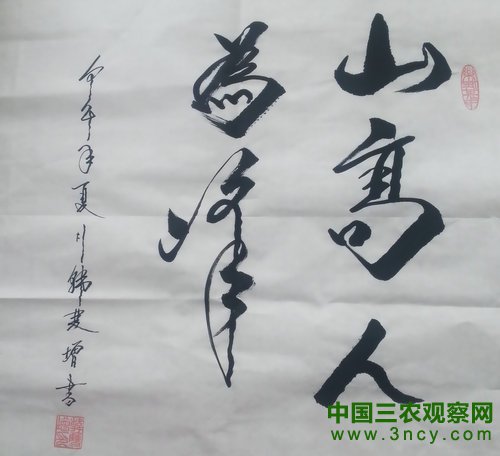 山高人
為峰
甲午年夏 增书
中国三农观察网
www.3ncy.com